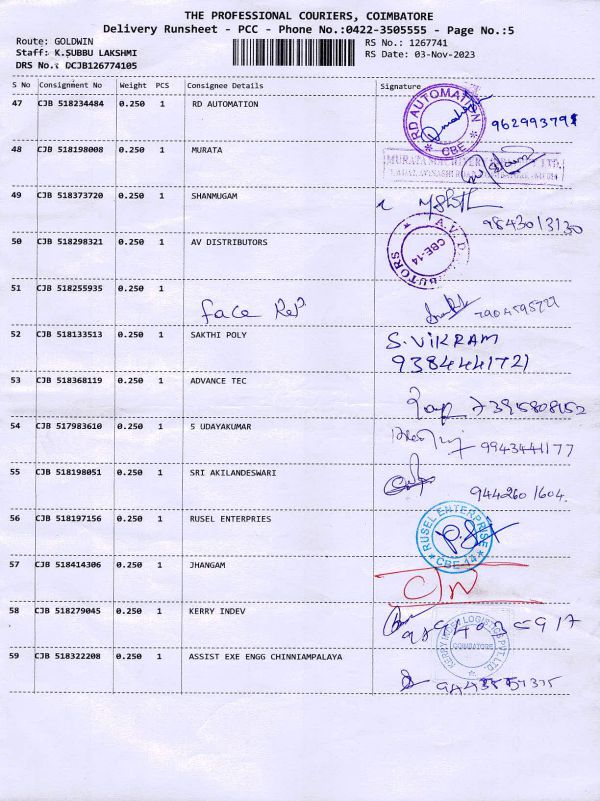 THE PROFESSIONAL COURIERS, COIMBATORE
Delivery Runsheet - PCC - Phone No.:0422-3505555 - Page No.:5
Route: GOLDWIN
Staff: K.SUBBU LAKSHMI
DRS No.: DCJB126774105
RS No.: 1267741
RS Date: 03-Nov-2023
S No Consignment No Weight PCS Consignee Details Signature
47 CJB 518234484 0.250 1 RD AUTOMATION
RD AUTOMATION
* CBE *
48 CJB 518198008 0.250 1 MURATA
MURATA MACHINERY LTD.
49 CJB 518373720 0.250 1 SHANMUGAM
9843013130
50 CJB 518298321 0.250 1 AV DISTRIBUTORS
A.V.D
BUTORS
CBE-14
51 CJB 518255935 0.250 1
face Rep.
7904595721
52 CJB 518133513 0.250 1 SAKTHI POLY
S.VIKRAM
9384441721
53 CJB 518368119 0.250 1 ADVANCE TEC
7395808152
54 CJB 517983610 0.250 1 S UDAYAKUMAR
9943441177
55 CJB 518198051 0.250 1 SRI AKILANDESWARI
9442601604.
56 CJB 518197156 0.250 1 RUSEL ENTERPRIES
RUSEL ENTERPRISE
* CBE-14 *
57 CJB 518414306 0.250 1 JHANGAM
58 CJB 518279045 0.250 1 KERRY INDEV
KERRY INDEV LOGISTICS PVT. LTD.
COIMBATORE
59 CJB 518322208 0.250 1 ASSIST EXE ENGG CHINNIAMPALAYA